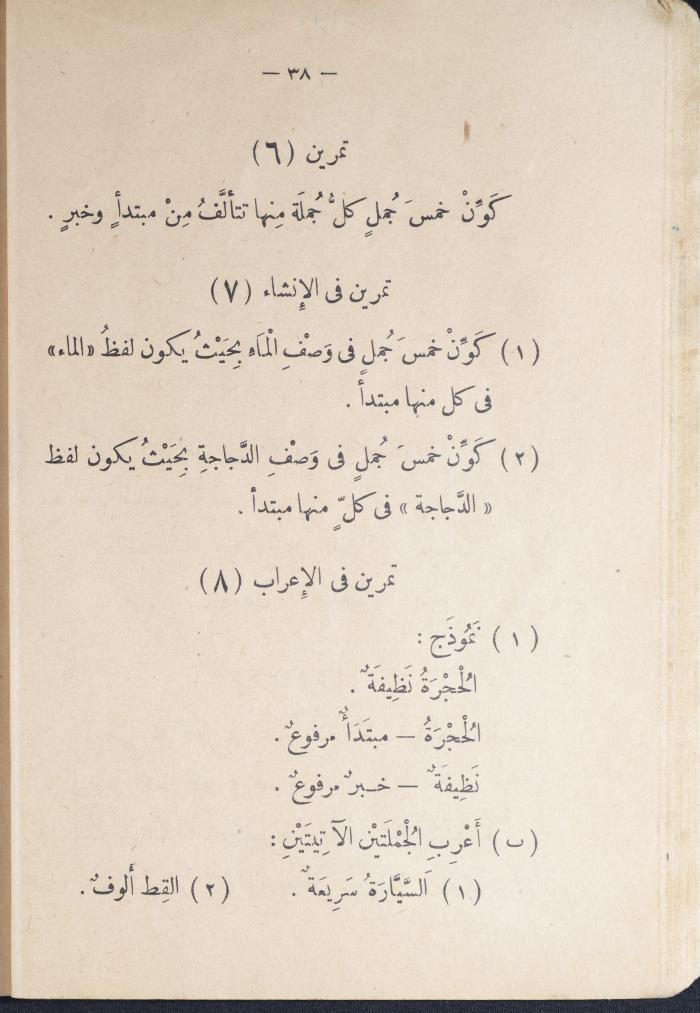 — ٣٨ —
تمرين (٦)
كَوِّنْ خمسَ جُملٍ كلُّ جُملَة مِنها تتألَّفُ مِنْ مبتدأٍ وخبرٍ .
تمرين فى الإِنشاء (٧)
(١) كَوِّنْ خمسَ جُملٍ فى وَصْفِ الْمَاءِ بِحَيْثُ يكون لفظُ «الماء»
فى كل منها مبتدأً .
(٢) كَوِّنْ خمسَ جُملٍ فى وَصْفِ الدَّجاجةِ بِحَيْثُ يكون لفظ
« الدَّجاجة » فى كلٍّ منها مبتدأ .
تمرين فى الإِعراب (٨)
(١) نَمُوذَج :
الْحُجْرَةُ نَظِيفَةٌ .
الْحُجْرَةُ — مبتَدَأٌ مرفوعٌ .
نَظِيفَةٌ — خبرٌ مرفوعٌ .
(ب) أَعْرِبِ الْجُمْلَتَيْنِ الآتِيَتَيْنِ :
(١) اَلسَّيَّارَةُ سَرِيعَةٌ . (٢) القِط أَلوفٌ .